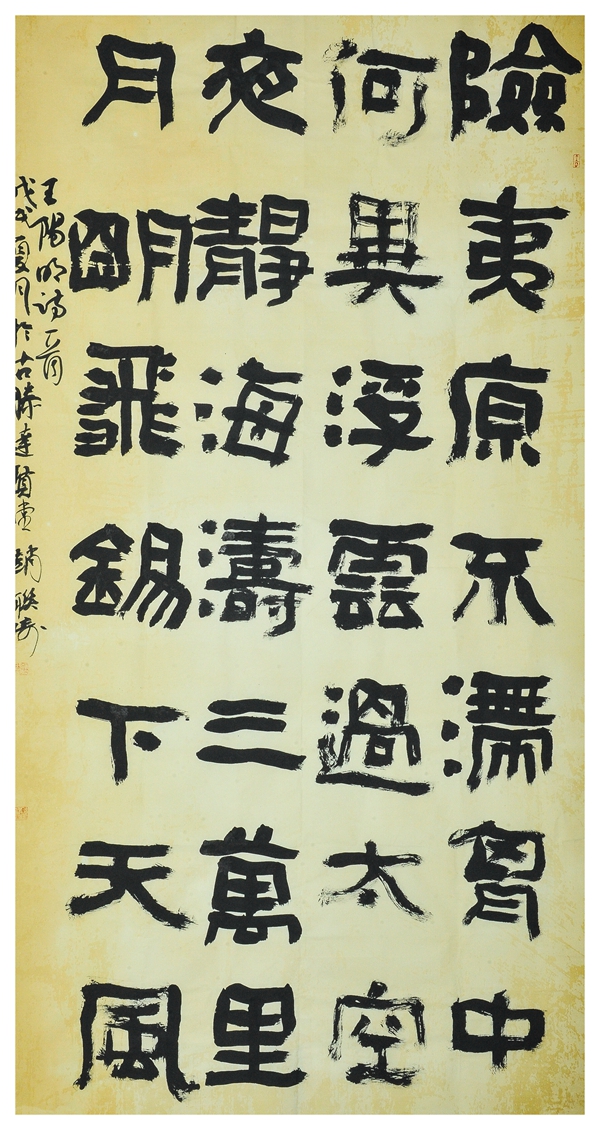 險夷原不滯胷中
何異浮雲過太空
夜靜海濤三萬里
月明飛錫下天風
王陽明詩一首
戊戌夏月於古滕